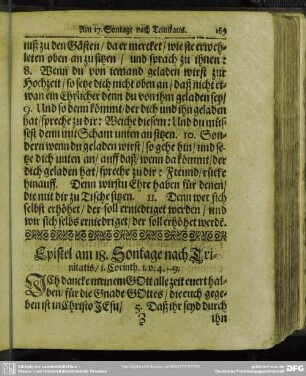 Am 17. Sontage nach Trinitatis. 169
niß zu den Gästen / da er mercket / wie sie erweh-
leten oben an zu sitzen / und sprach zu ihnen:
8. Wenn du von iemand geladen wirst zur
Hochzeit / so setze dich nicht oben an / daß nicht et-
wan ein Ehrlicher denn du von ihm geladen sey /
9. Und so denn kömmt / der dich und ihn geladen
hat / spreche zu dir: Weiche diesem: Und du müs-
sest denn mit Scham unten an sitzen. 10. Son-
dern wenn du geladen wirst / so gehe hin / und se-
tze dich unten an / auff daß / wenn da kömmt / der
dich geladen hat / spreche zu dir: Freund / rücke
hinauff. Denn wirstu Ehre haben für denen /
die mit dir zu Tische sitzen. 11. Denn wer sich
selbst erhöhet / der soll erniedriget werden / und
wer sich selbs erniedriget / der soll erhöhet werdē.
Epistel am 18. Sontage nach Tri-
nitatis / 1. Corinth. 1. v. 4.-9.
ICh dancke meinem GOtt alle zeit euert hal-
ben / für die Gnade GOttes / die euch gege-
ben ist in Christo JEsu / 5. Daß ihr seyd durch
ihn